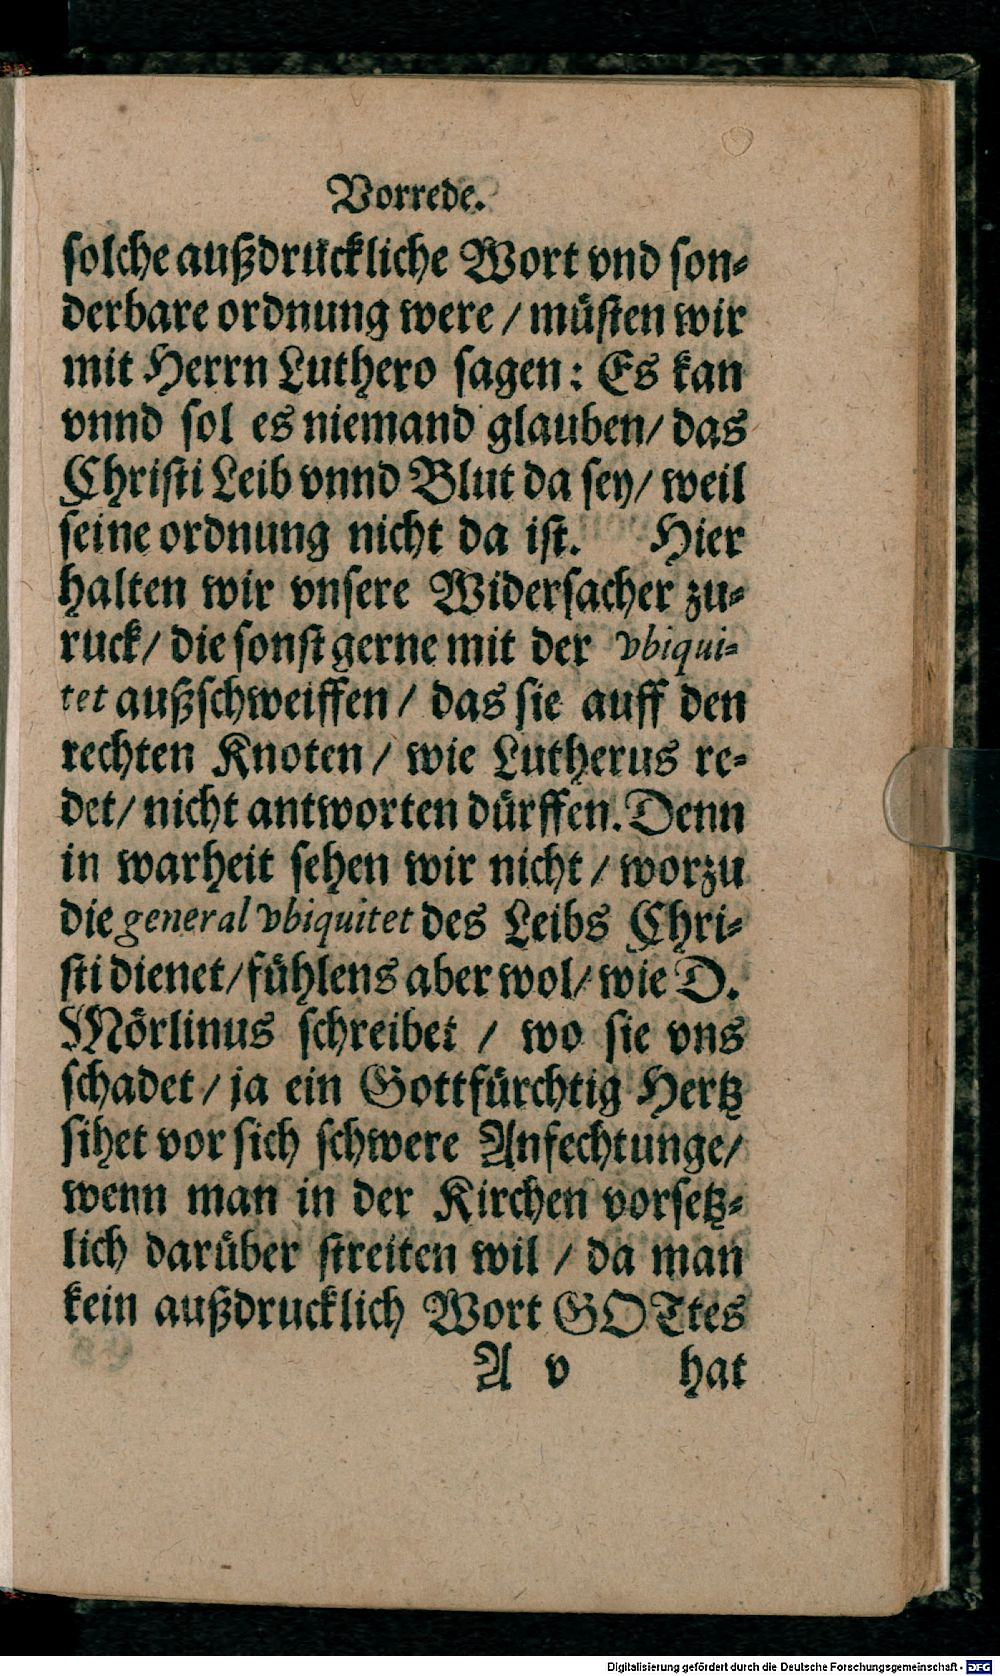 Vorrede.
solche außdruckliche Wort vnd son⸗
derbare ordnung were / müsten wir
mit Herrn Luthero sagen: Es kan
vnnd sol es niemand glauben/ das
Christi Leib vnnd Blut da sey/ weil
seine ordnung nicht da ist. Hier
halten wir vnsere Widersacher zu⸗
ruck/ die sonst gerne mit der vbiqui⸗
tet außschweiffen / das sie auff den
rechten Knoten / wie Lutherus re⸗
det/ nicht antworten dürffen. Denn
in warheit sehen wir nicht / worzu
die general vbiquitet des Leibs Chri⸗
sti dienet/ fühlens aber wol/ wie D.
Mörlinus schreibet / wo sie vns
schadet / ja ein Gottfürchtig Hertz
sihet vor sich schwere Anfechtunge/
wenn man in der Kirchen vorsetz⸗
lich darüber streiten wil / da man
kein außdrucklich Wort GOTtes
A v hat
Digitalisierung gefördert durch die Deutsche Forschungsgemeinschaft - DFG